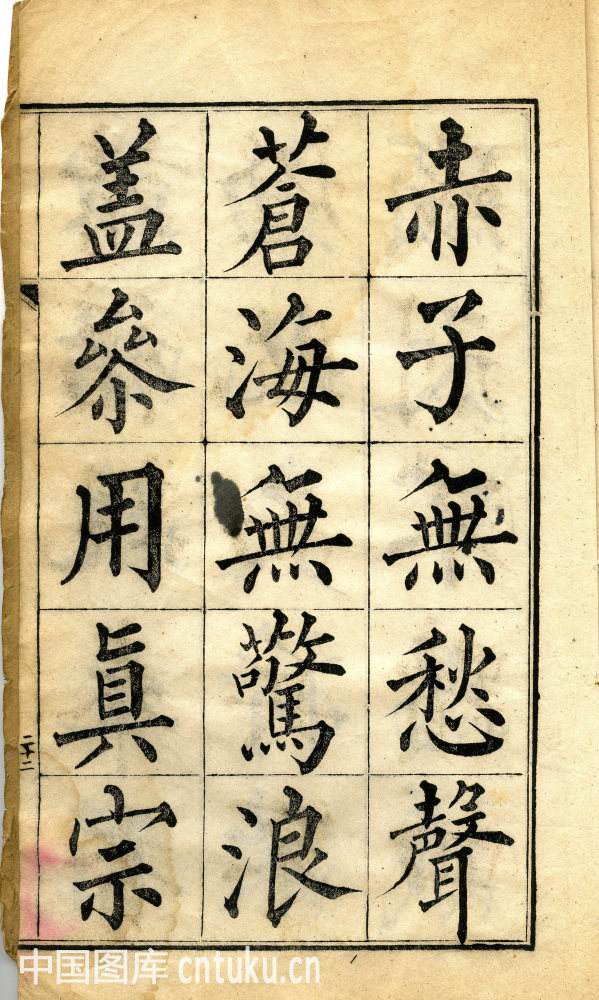 赤子無愁聲
蒼海無驚浪
盖叅用眞宗
二十二
中国图库 cntuku.cn